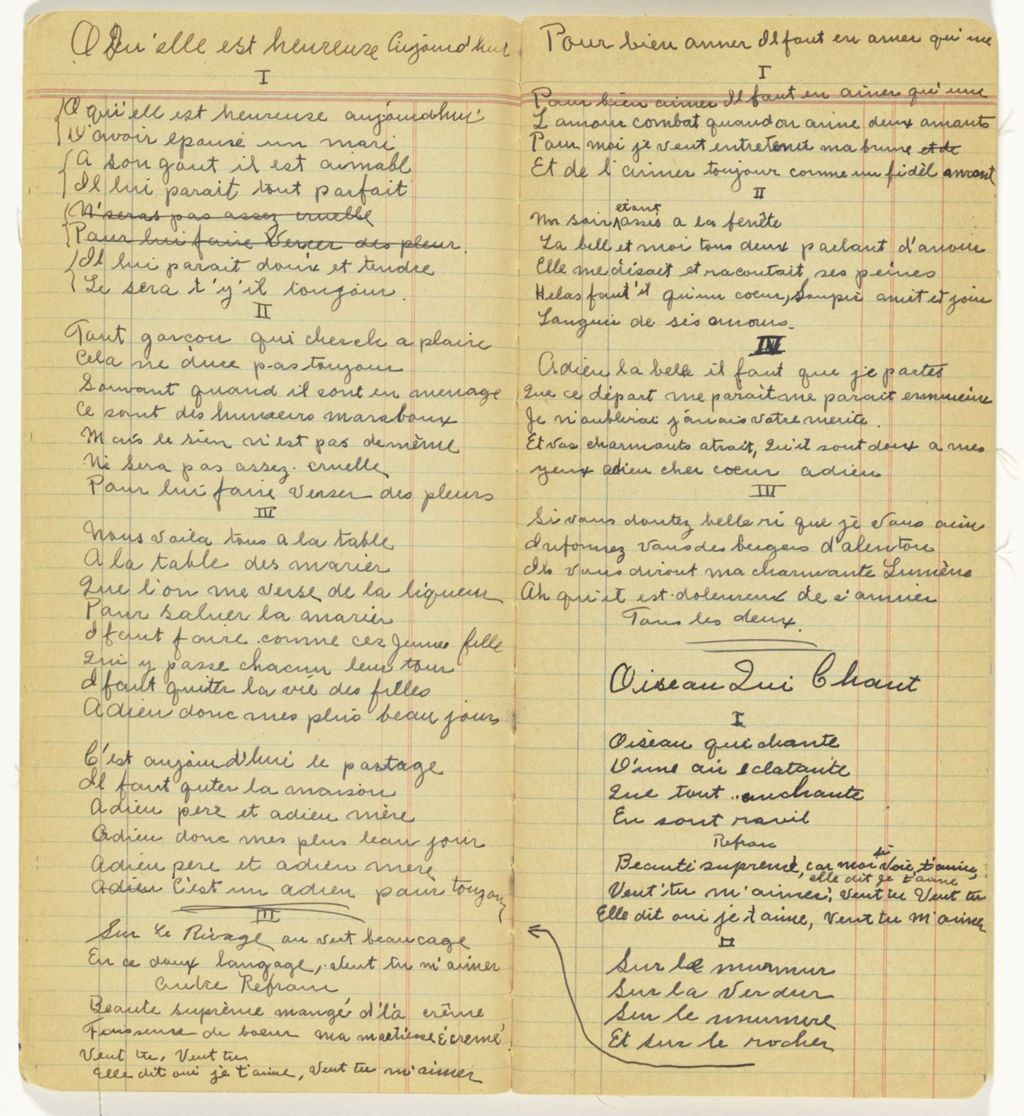 O Qu'elle est heureuse Aujourd'hui
I
O qu'ell est heureuse aujourd'hui
D'avoir epousé un mari
A son gout il est aimabl
Il lui parait tout parfait
N'seras pas assez cruelle
Pour lui faire Verser des pleur
Il lui parait doux et tendre
Le sera t'y'il toujour.
II
Tout garçon qui cherch a plaire
Cela ne dure pas toujour
Souvant quand il sont en menage
Ce sont des humeurs maraboux
Mais le sien n'est pas de même
Ne Sera pas assez cruelle
Pour lui faire Verser des pleurs
III
Nous voila tous a la table
A la table des marier
Que l'on me verse de la liqueur
Pour saluer la marier
I faut faire comme ces jeune fille
Qui y passe chacun leur tour
I faut quiter la vie des filles
Adieu donc mes plus beau jours
C'est aujourd'hui le partage
Il faut quter la maison
Adieu pere et adieu mère
Adieu donc mes plus beau jour
Adieu pere et adieu mere
Adieu C'est un adieu pour toujour
III
Sur Le Rivage au vert beaucage
En ce doux langage, Veut tu m'aimer
autre Refrain
Beaute suprême mangé d'là crême
Faiseuse de boeur ma
Veut tu, Veut tu
Elle dit oui je t'aime, Veut tu m'aimer
Pour bien aimer Il faut en aimer qu'une
I
Pour bien aimer Il faut en aimer qu'une
L amour combat quand on aime deux amants
Pour moi je veut entretenir ma brune et de
Et de l'aimer toujour comme un fidèl amant
II
Un soir étant assis a la fenête
La bell et moi tous deux parlant d'amour
Elle me disait et racontait ses peines
Helas faut'il qu'un coeur, Soupir amit et jour
Languir de ses amours.
IV
Adieu la belle il faut que je partes
Que ce départ me parait me parait ennuieux
Je n'aublirai jamais votre merite.
Et vos charmants atrait, Qu'il sont doux a mes
yeux adieu cher coeur adieu
III
Si vous doutez belle si que je Vous aim
Informez vous des bergers d'alentour
Ils vous diront ma charmante Lumière
Ah qu'il est doloureux de s'aimer
Tous les deux.
Oiseau Qui Chant
I
Oiseau qui chante
D'une air eclatante
Que tout enchante
En sont ravil
Refrain
Beauté suprême, car moi si Voie, t'aime
elle dit je t'aime
Veut'tu m'aimer, Veut tu Veut tu
Elle dit oui je t'aime, Veut tu m'aimer
II
Sur le murmur
Sur la Verdur
Sur le murmure
Et sur le rocher